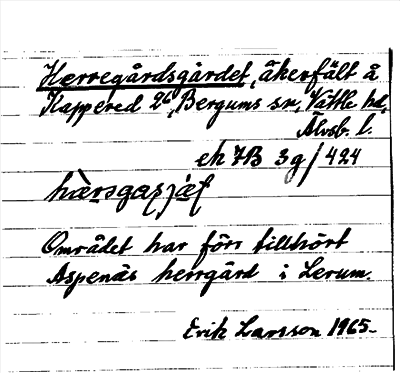 Herregårdsgärdet, åkerfält å
Kappered 2⁶, Bergums sn, Vättle hd,
Älvsb. l.
ek 7B 3g/424
Området har förr tillhört
Aspenäs herrgård i Lerum.
Erik Larsson 1965.